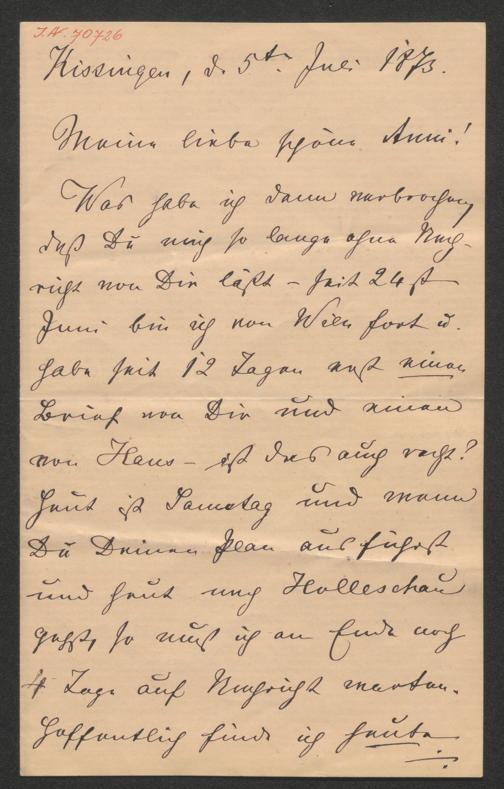 J.N. 70726
Kissingen, d. 5ten Juli 1873.
Meine liebe schöne Anni!
Was habe ich denn verbrochen,
daß Du mich so lange ohne Nach-
richt von Dir läßt – seit 24st
Juni bin ich von Wien fort u.
habe seit 12 Tagen erst einen
Brief von Dir und einen
von Hans – ist das auch recht?
Heut ist Samstag und wenn
Du Deinen Plan ausführst
und heut nach Holleschau
gehst, so muß ich am Ende noch
4 Tage auf Nachricht warten.
Hoffentlich finde ich heute